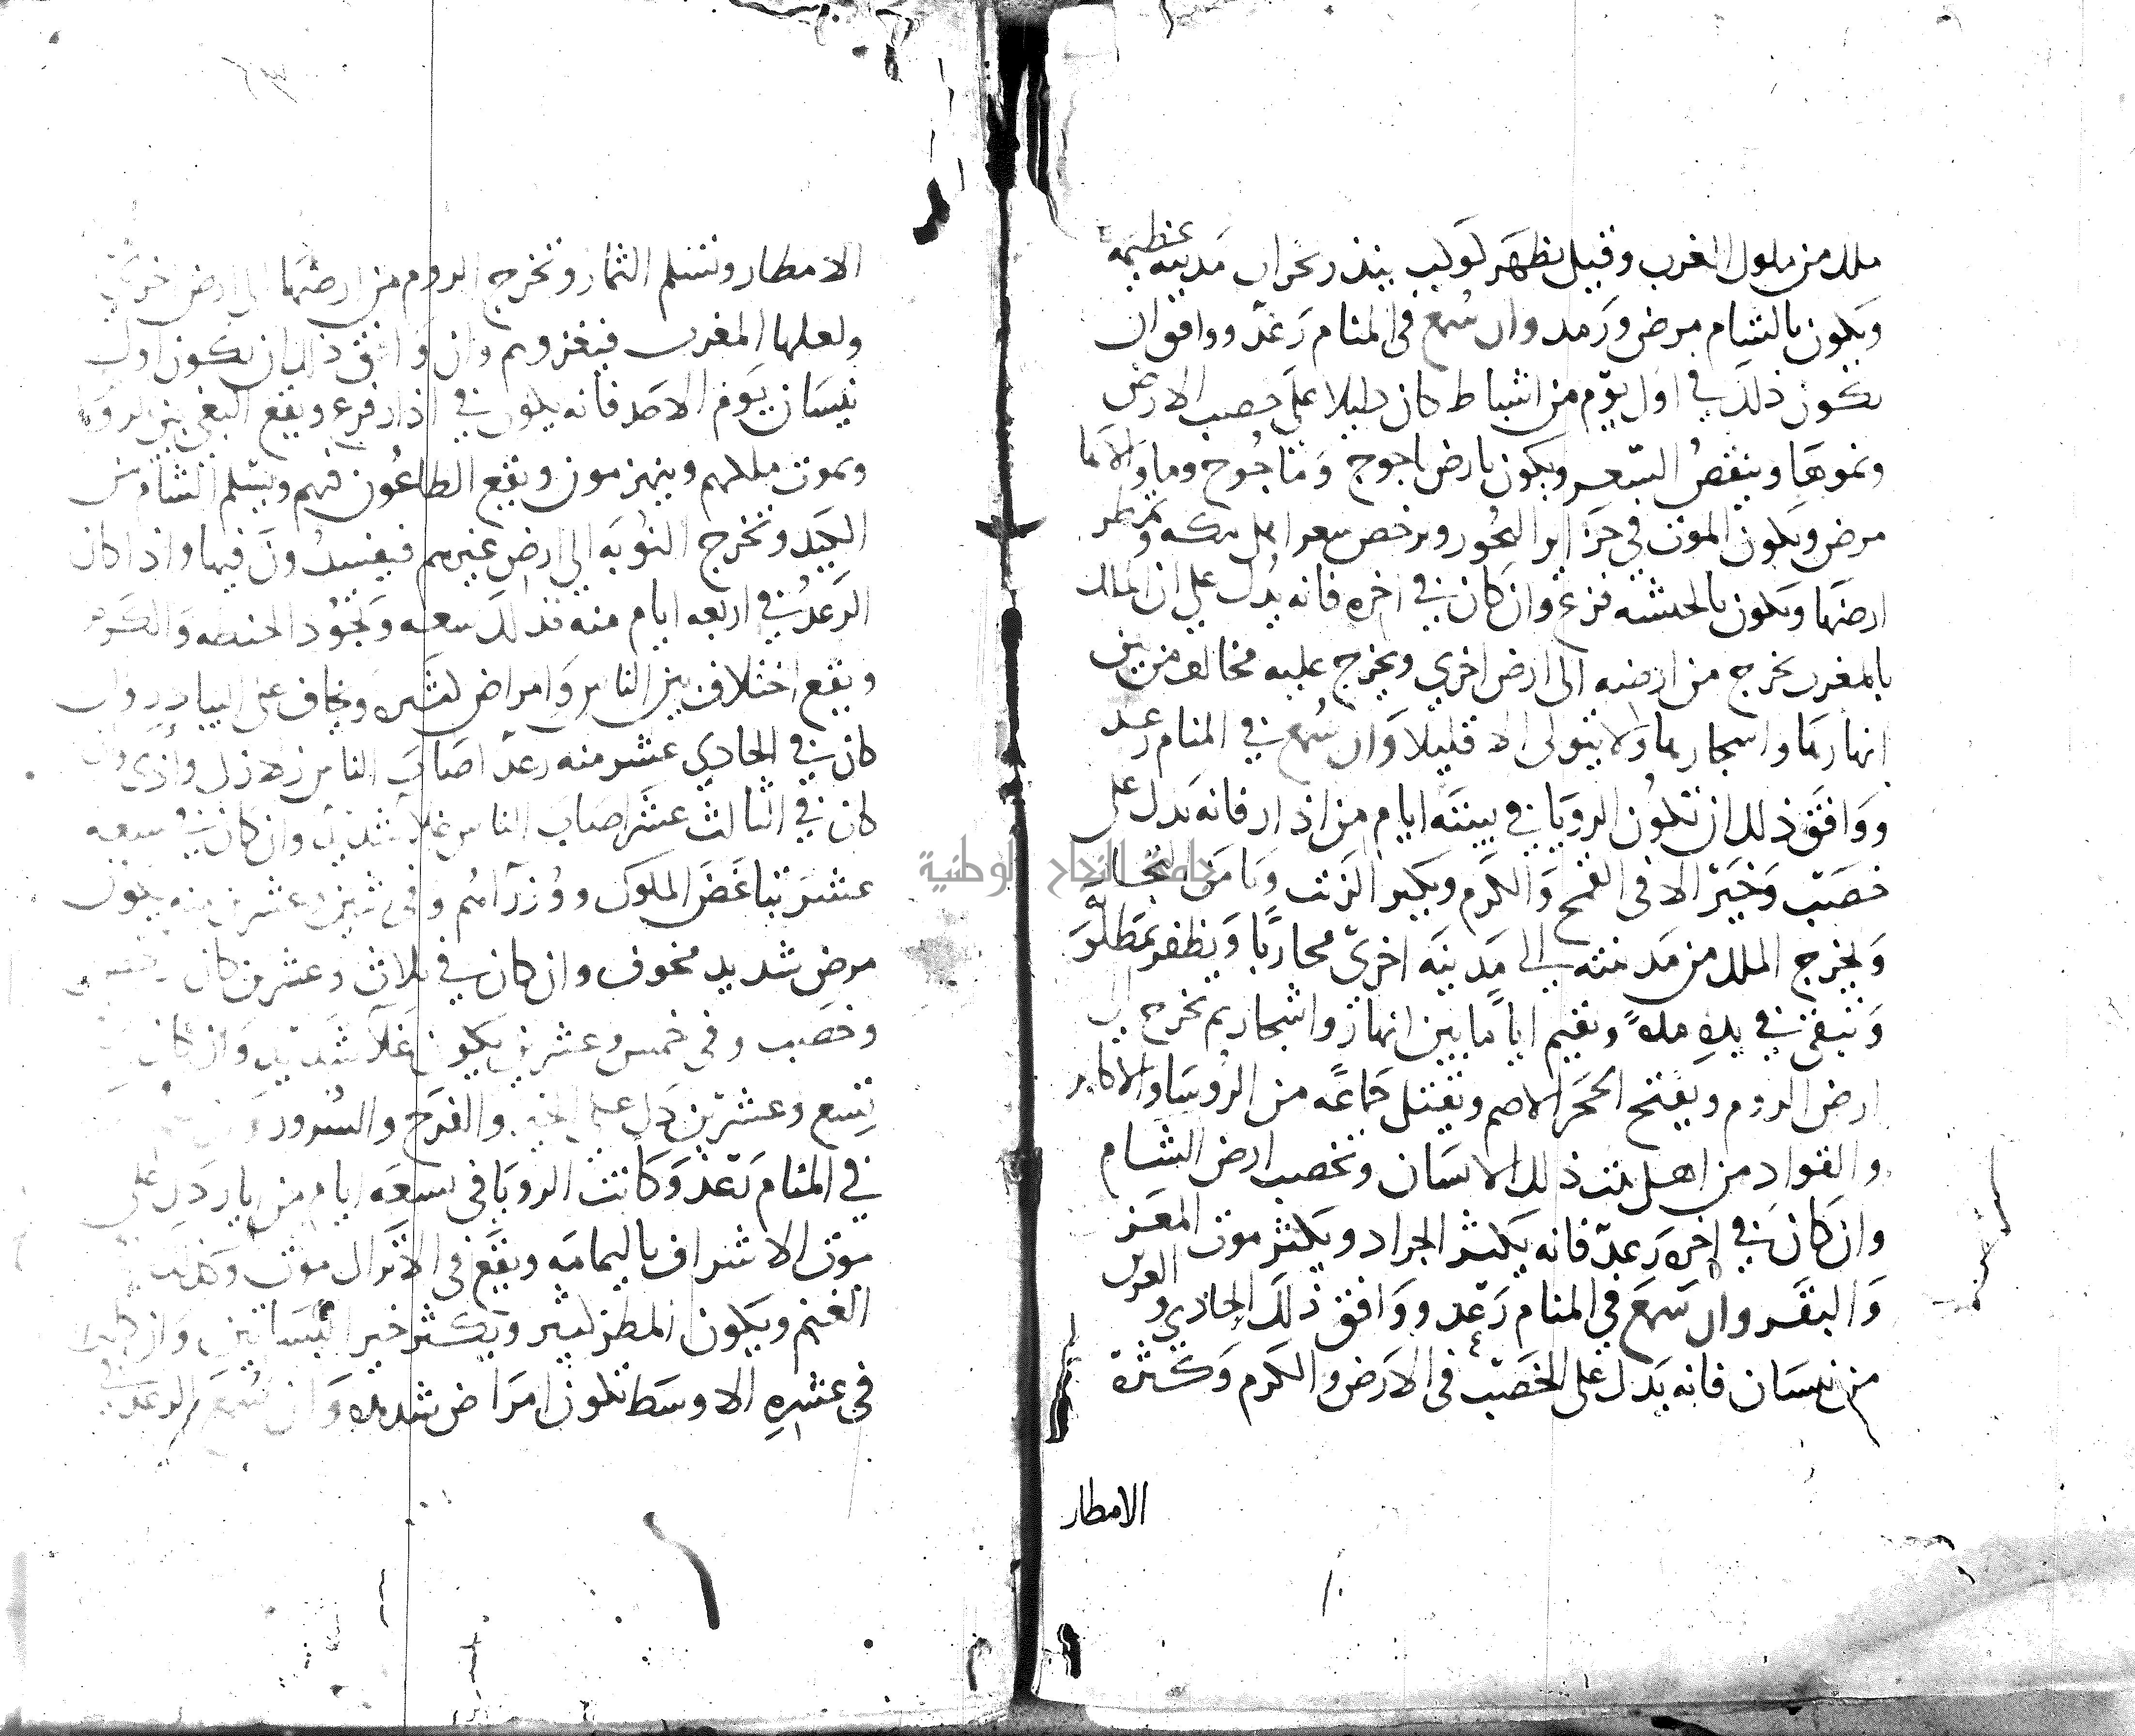 ملك من ملوك المغرب وقيل يظهر كوكب ينذر بخراب مدينه عظيمه
ويكون بالشام مرض ورمد وان سمع في المنام رعد ووافق ان
يكون ذلك في اول يوم من اشباط كان دليلا على خصب الارض
ونموها وينقص السعر ويكون بارض ياجوج وماجوج وما والاهما
مرض ويكون الموت في جزاير البحور ويرخص سعر اهل مكه وتمطر
ارضها ويكون بالحبشه فزع وان كان في اخره فانه يدل على ان الملك
بالمغرب يخرج من ارضه الى ارض اخري ويخرج عليه مخالف من بين
انهارها واشجارها ولا يتولى الا قليلا وان سمع في المنام رعد
ووافق ذلك ان تكون الرويا في ستة ايام من اذار فانه يدل على
خصب وخير الا في القمح والكرم ويكبر الزيت ويامن التجار
ويخرج الملك من مدينته الى مدينه اخري محاربا ويظفر بمطلوبه
ويبقى في يده مده ويقيم اياما بين انهار واشجار ثم يخرج الى
ارض الروم ويفتح الحجر الاصم ويقتل جماعه من الروسا والاكابر
والقواد من اهل بيت ذلك الانسان وتخصب ارض الشام
وان كان في اخره رعد فانه يكثر الجراد ويكثر موت المعز
والبقر وان سمع في المنام رعد ووافق ذلك الحادي والعشرين
من نيسان فانه يدل على الخصب في الارض والكرم وكثرة
الامطار
الامطار وتسلم الثمار وتخرج الروم من ارضها الى ارض اخري
ولعلها المغرب فيغزوهم وان وافق ذلك ان يكون اول
نيسان يوم الاحد فانه يكون في اذار فزع ويقع البغي بين الروم
ويموت ملكهم وينهزمون ويقع الطاعون فيهم ويسلم الشام من
الكيد وتخرج النوبه الى ارض غيرهم فيفسدون فيها واذا كان
الرعد في اربعه ايام منه فذلك سعه وتجود الحنطه والكروم
ويقع اختلاف بين الناس وامراض كثيره ويخاف على البيادر وان
كان في الحادي عشر منه رعد اصاب الناس زلازل واذى وان
كان في الثالث عشر اصاب الناس غلا شديد وان كان في سبعه
عشر تباغض الملوك ووزراهم وفي ثنين وعشرين منه يكون
مرض شديد مخوف وان كان في ثلاث وعشرين كان
وخصب وفي خمس وعشرين يكون غلا شديد وان كان
تسع وعشرين دل على الخير والفرح والسرور
في المنام رعد وكانت الرويا في سبعه ايام من ايار دل على
موت الاشراف باليمامه ويقع في الاتراك موت
الغنم ويكون المطر كثير ويكثر خير البساتين وان كان
في عشره الاوسط تكون امراض شديده وان سمع الرعد
جامعة النجاح الوطنية